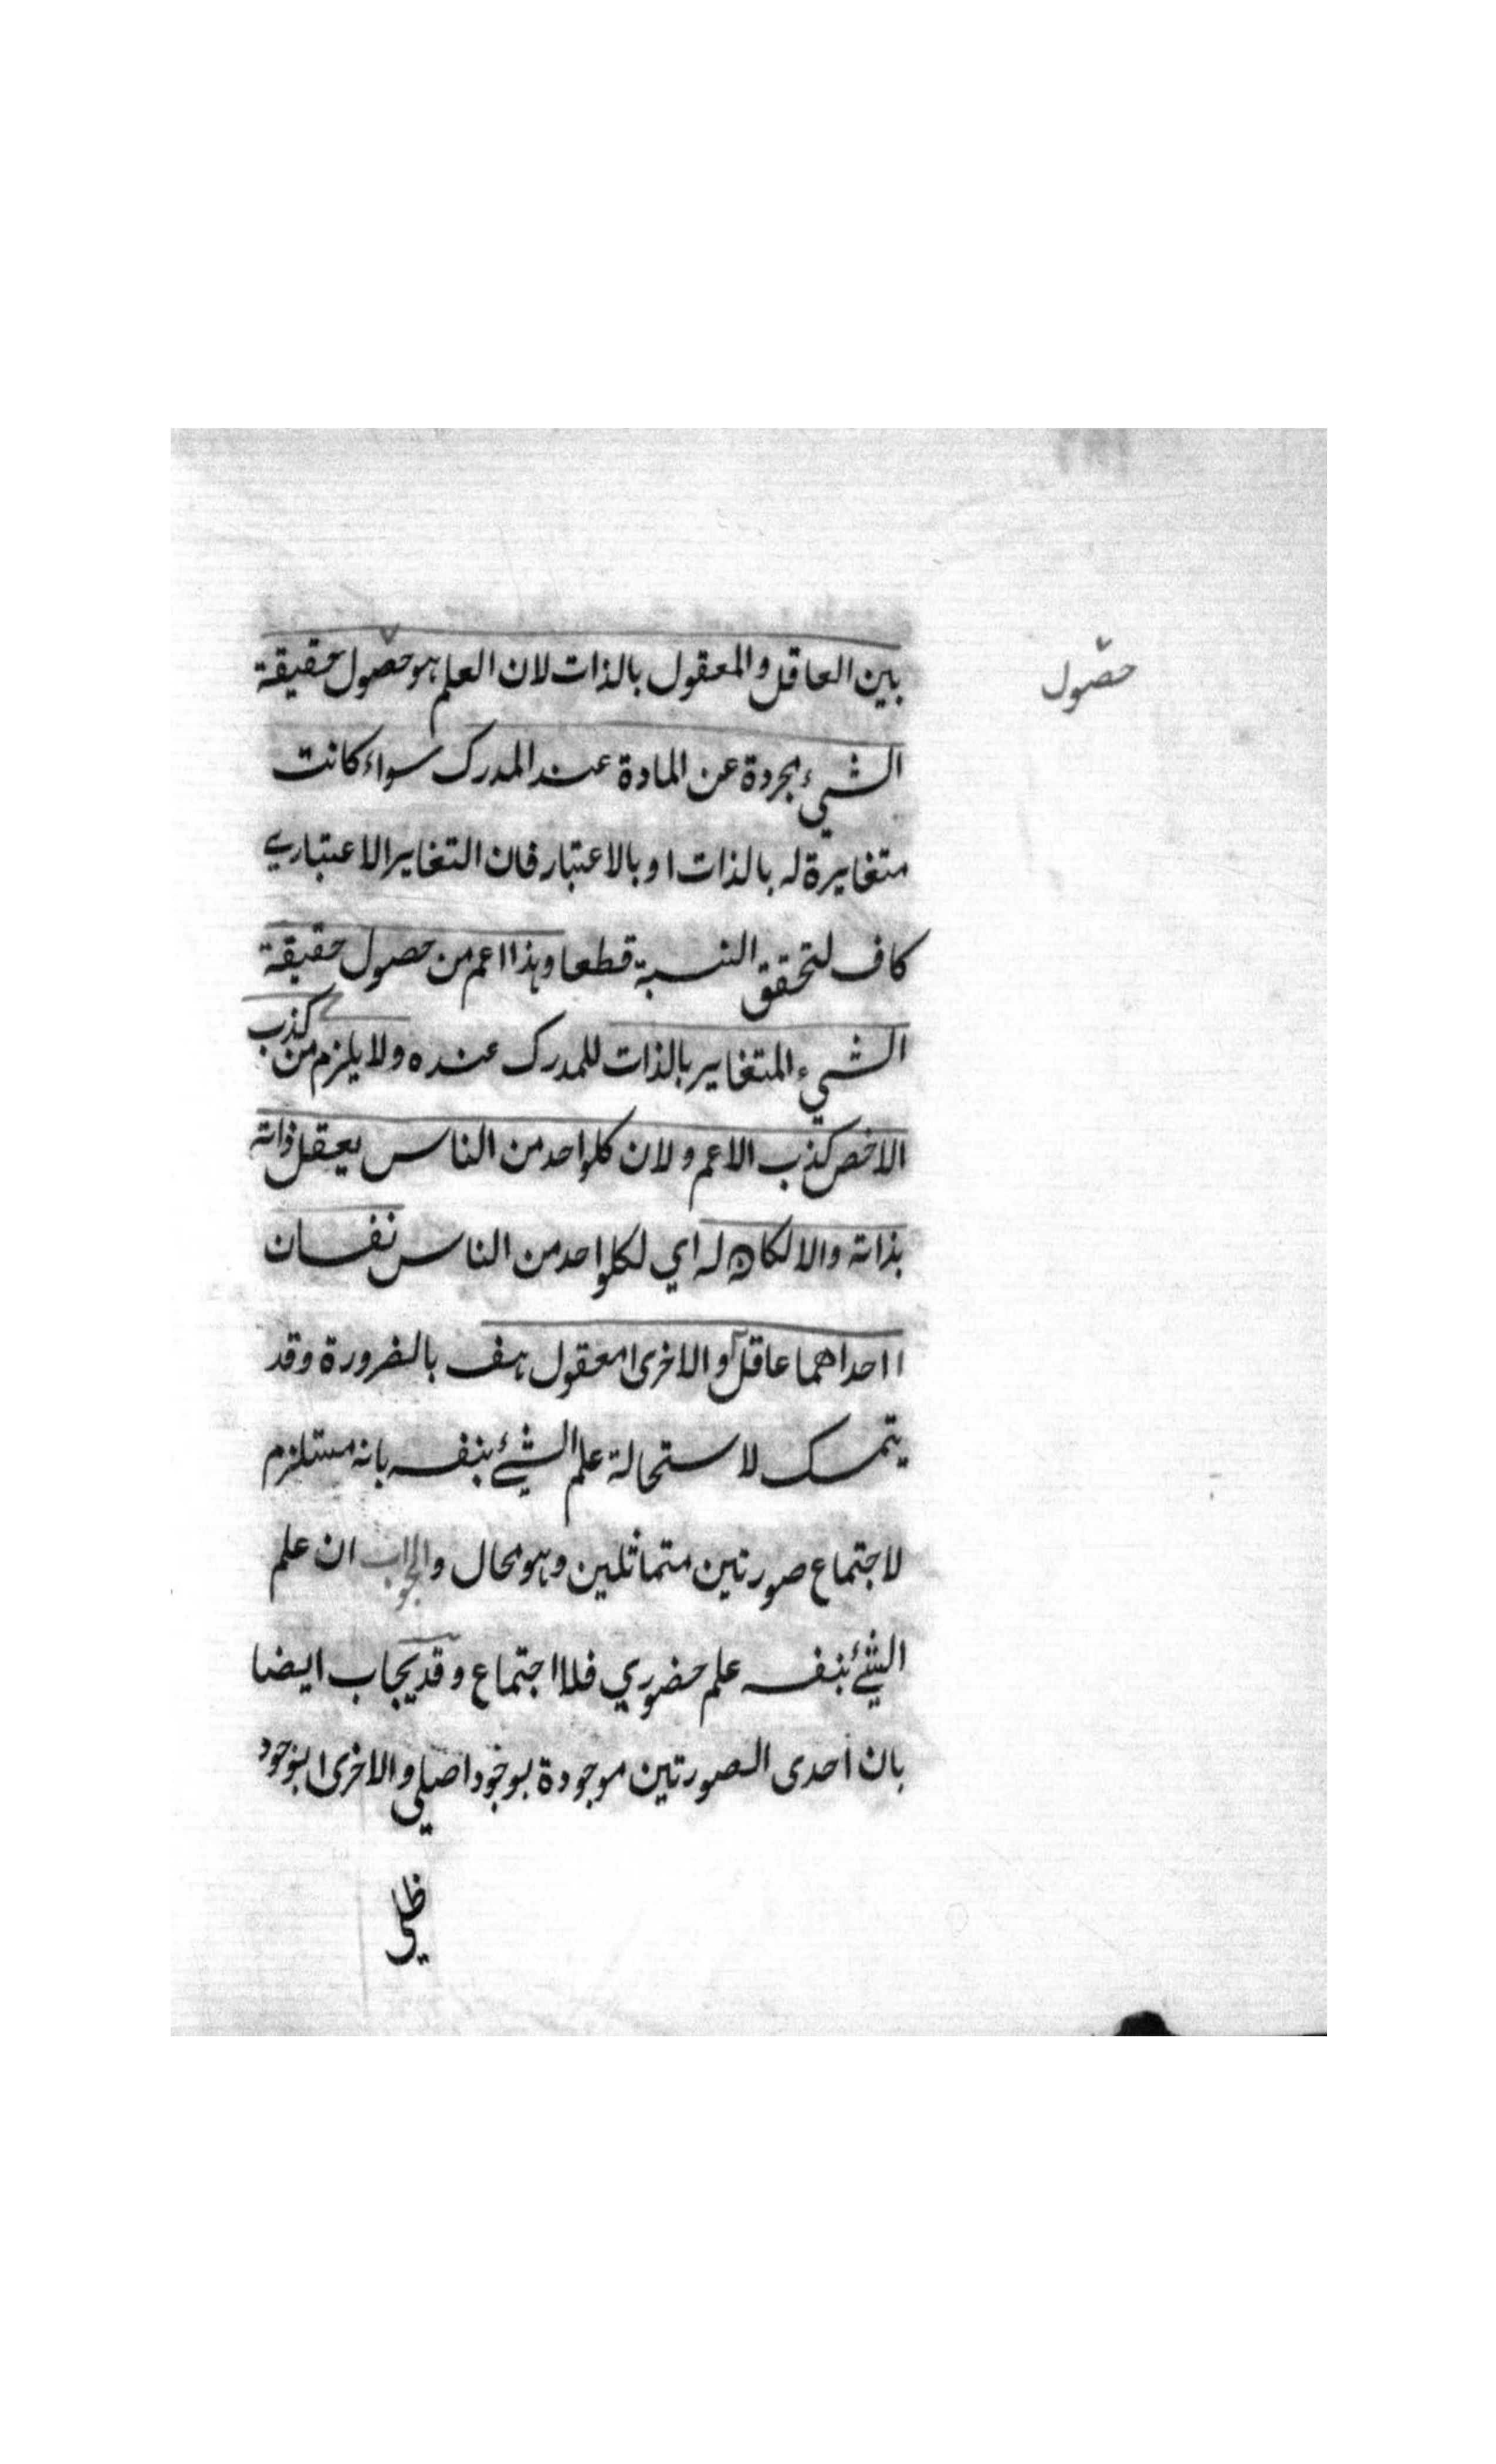 حصول
بين العاقل والمعقول بالذات لان العلم هو حصول حقيقة
الشيء مجردة عن المادة عند المدرك سواء كانت
متغايرة له بالذات او بالاعتبار فان التغاير الاعتباري
كاف لتحقق النسبة قطعا وهذا اعم من حصول حقيقة
الشيء المتغاير بالذات للمدرك عنده ولا يلزم من كذب
الاخص كذب الاعم ولان كلواحد من الناس يعقل ذاته
بذاته والا لكان له اي لكلواحد من الناس نفسان
احداهما عاقل والاخرى معقول هف بالضرورة وقد
يتمسك لاستحالة علم الشئ بنفسه بانه مستلزم
لاجتماع صورتين متماثلين وهو محال والجواب ان علم
الشئ بنفسه علم حضوري فلا اجتماع وقد يجاب ايضا
بان أحدى الصورتين موجودة بوجود اصلي والاخرى بوجود
ظلي